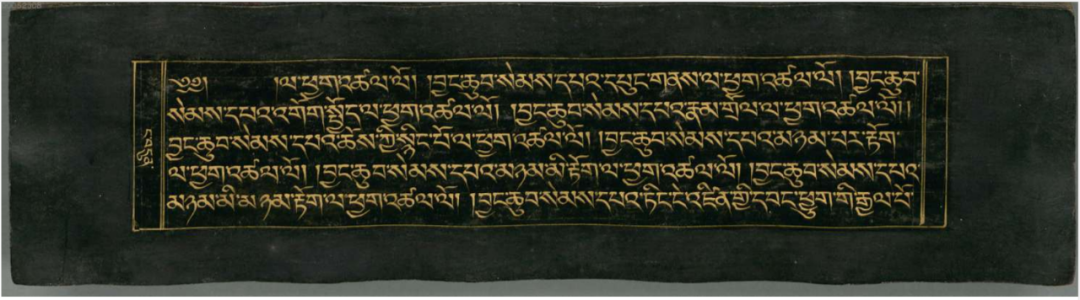 ༄༅། །ལ་ཕྱག་འཚལ་ལོ། །བྱང་ཆུབ་སེམས་དཔའ་དཔུང་གནས་ལ་ཕྱག་འཚལ་ལོ། །བྱང་ཆུབ་
སེམས་དཔའ་འགོག་སྤྱོད་ལ་ཕྱག་འཚལ་ལོ། །བྱང་ཆུབ་སེམས་དཔའ་རྣམ་གྲོལ་ལ་ཕྱག་འཚལ་ལོ།།
བྱང་ཆུབ་སེམས་དཔའ་ཆོས་ཀྱི་སྙིང་པོ་ལ་ཕྱག་འཚལ་ལོ། །བྱང་ཆུབ་སེམས་དཔའ་མཉམ་པར་རྟོག་
ལ་ཕྱག་འཚལ་ལོ། །བྱང་ཆུབ་སེམས་དཔའ་མཉམ་མི་རྟོག་ལ་ཕྱག་འཚལ་ལོ། །བྱང་ཆུབ་སེམས་དཔའ་
མཉམ་མི་མཉམ་རྟོག་ལ་ཕྱག་འཚལ་ལོ། །བྱང་ཆུབ་སེམས་དཔའ་ཏིང་ངེ་འཛིན་གྱི་དབང་ཕྱུག་གི་རྒྱལ་པོ་